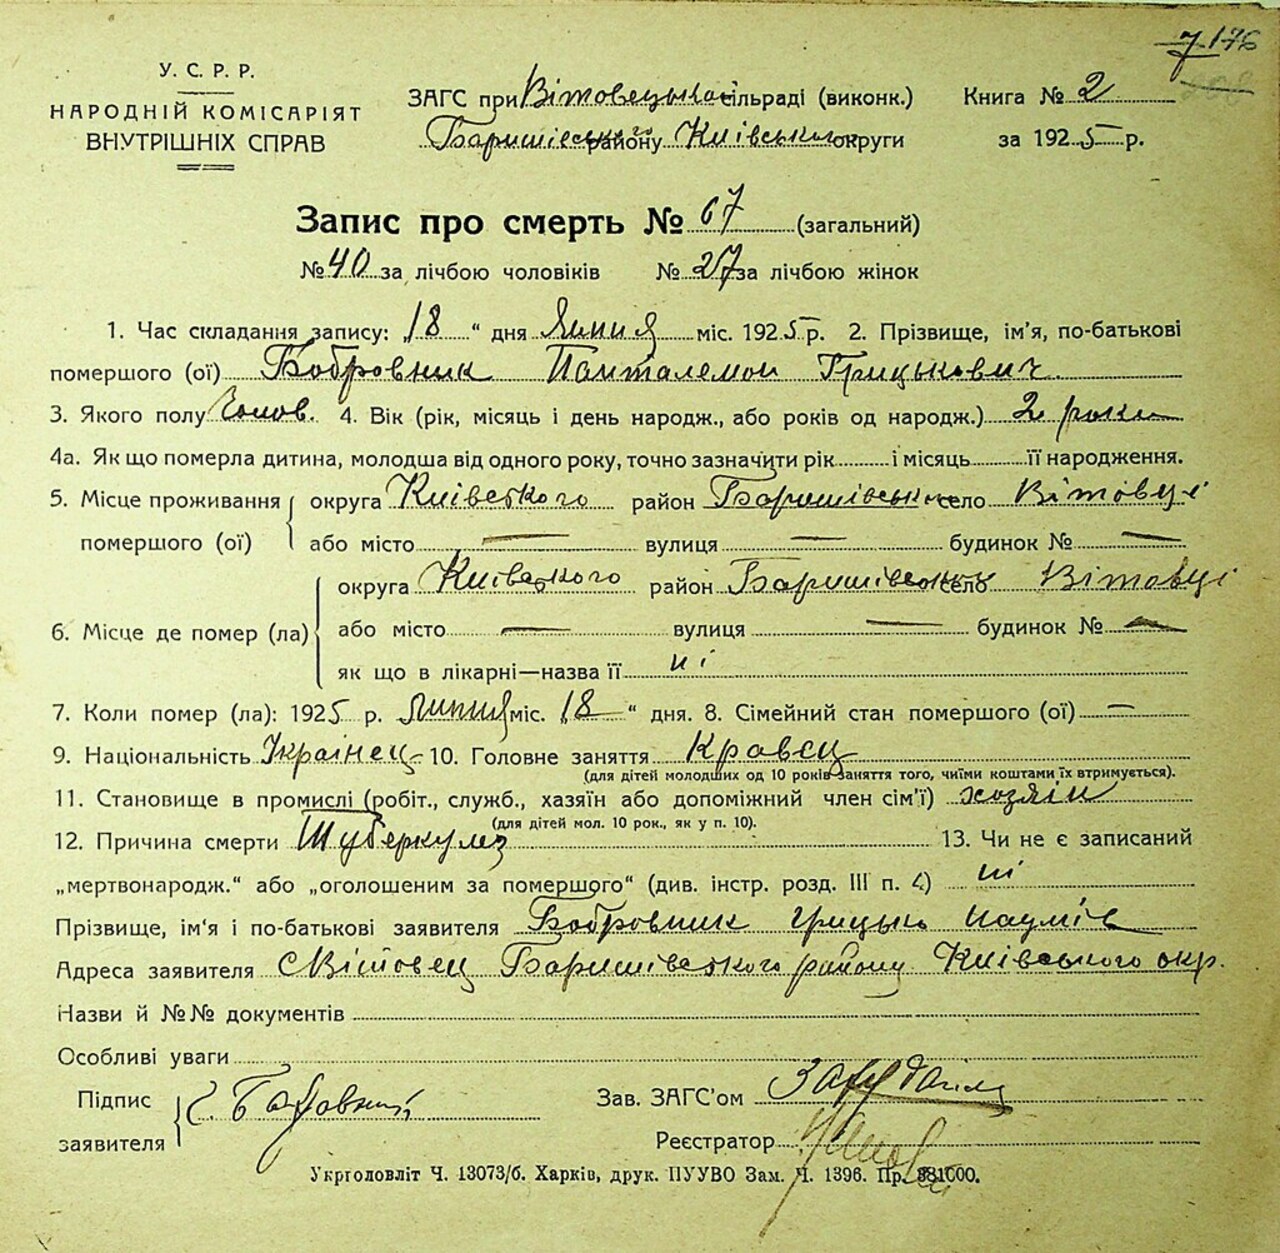 7 176
У. С. Р. Р.
НАРОДНІЙ КОМІСАРІЯТ
ВНУТРІШНІХ СПРАВ
ЗАГС при Вітовецькой сільраді (виконк.)
Баришівського району Київського округи
Книга № 2
за 1925 р.
Запис про смерть № 67 (загальний)
№ 40 за лічбою чоловіків № 27 за лічбою жінок
1. Час складання запису: „18“ дня Липня міс. 1925 р. 2. Прізвище, ім’я, по-батькові
помершого (ої) Бобровник Панталемон Грицькович
3. Якого полу Чолов. 4. Вік (рік, місяць і день народж., або років од народж.) 2 роки
4а. Як що померла дитина, молодша від одного року, точно зазначити рік і місяць її народження.
5. Місце проживання округа Київського район Баришівськ село Вітовці
помершого (ої) або місто — вулиця — будинок № —
округа Київського район Баришівськ село Вітовці
6. Місце де помер (ла) або місто — вулиця — будинок № —
як що в лікарні—назва її ні
7. Коли помер (ла): 1925 р. Липня міс. „18“ дня. 8. Сімейний стан помершого (ої) —
9. Національність Українец 10. Головне заняття Кравец
(для дітей молодших од 10 років заняття того, чиїми коштами їх втримується).
11. Становище в промислі (робіт., служб., хазяїн або допоміжний член сім’ї) хозяін
(для дітей мол. 10 рок., як у п. 10).
12. Причина смерти Туберкулез 13. Чи не є записаний
„мертвонародж.“ або „оголошеним за помершого“ (див. інстр. розд. III п. 4) ні
Прізвище, ім‘я і по-батькові заявителя Бобровник Грицько Наумів
Адреса заявителя с Вітовец Баришівського району Київського окр.
Назви й №№ документів
Особливі уваги
Підпис заявителя Бобровник
Зав. ЗАГС’ом
Реєстратор
Укрголовліт Ч. 13073/б. Харків, друк. ПУУВО Зам. Ч. 1396. Пр. 381000.